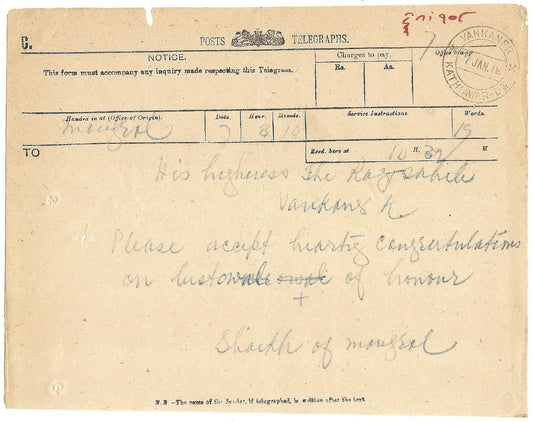 C.
POSTS TELEGRAPHS.
7
VANKANER
7 JAN. 16
KATHIAWAR
NOTICE.
This form must accompany any inquiry made respecting this Telegram.
Charges to pay.
Rs. As.
Office Stamp.
Handed in at (Office of Origin). Date. Hour. Minute. Service Instructions. Words.
Mongrol 7 8 10 19
TO
Recd. here at 10 H. 39 M.
His highness the Raj Saheb
Vankaner
Please accept hearty congrertulations
on bestowale of honour
Shaikh of mongrol
N. B.—The name of the Sender, if telegraphed, is written after the text.